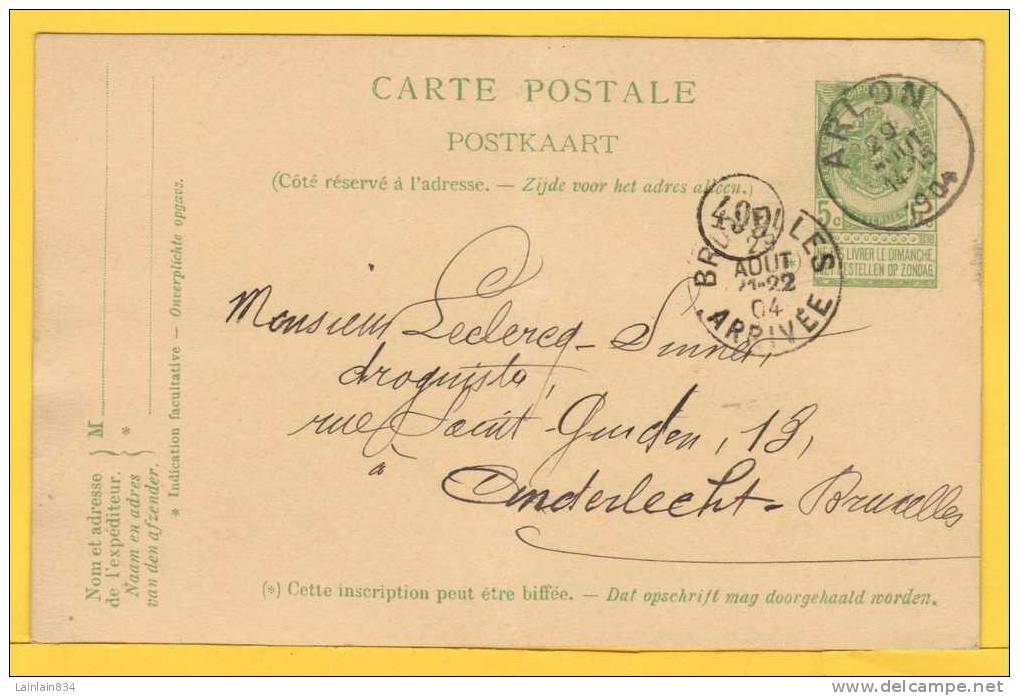 CARTE POSTALE
POSTKAART
(Côté réservé à l'adresse. — Zijde voor het adres alleen.)
ARLON
29
1904
5c
NE PAS LIVRER LE DIMANCHE
NIET BESTELLEN OP ZONDAG
40
BRUXELLES
29
AOUT
21-22
04
ARRIVÉE
Monsieur Leclercq-
droguiste,
rue Saint Guidon, 13,
à
Anderlecht-Bruxelles
(*) Cette inscription peut être biffée. — Dat opschrift mag doorgehaald worden.
Nom et adresse
de l'expéditeur.
Naam en adres
van den afzender.
} M
} *
* Indication facultative — Onverplichte opgave.
Lainlain834